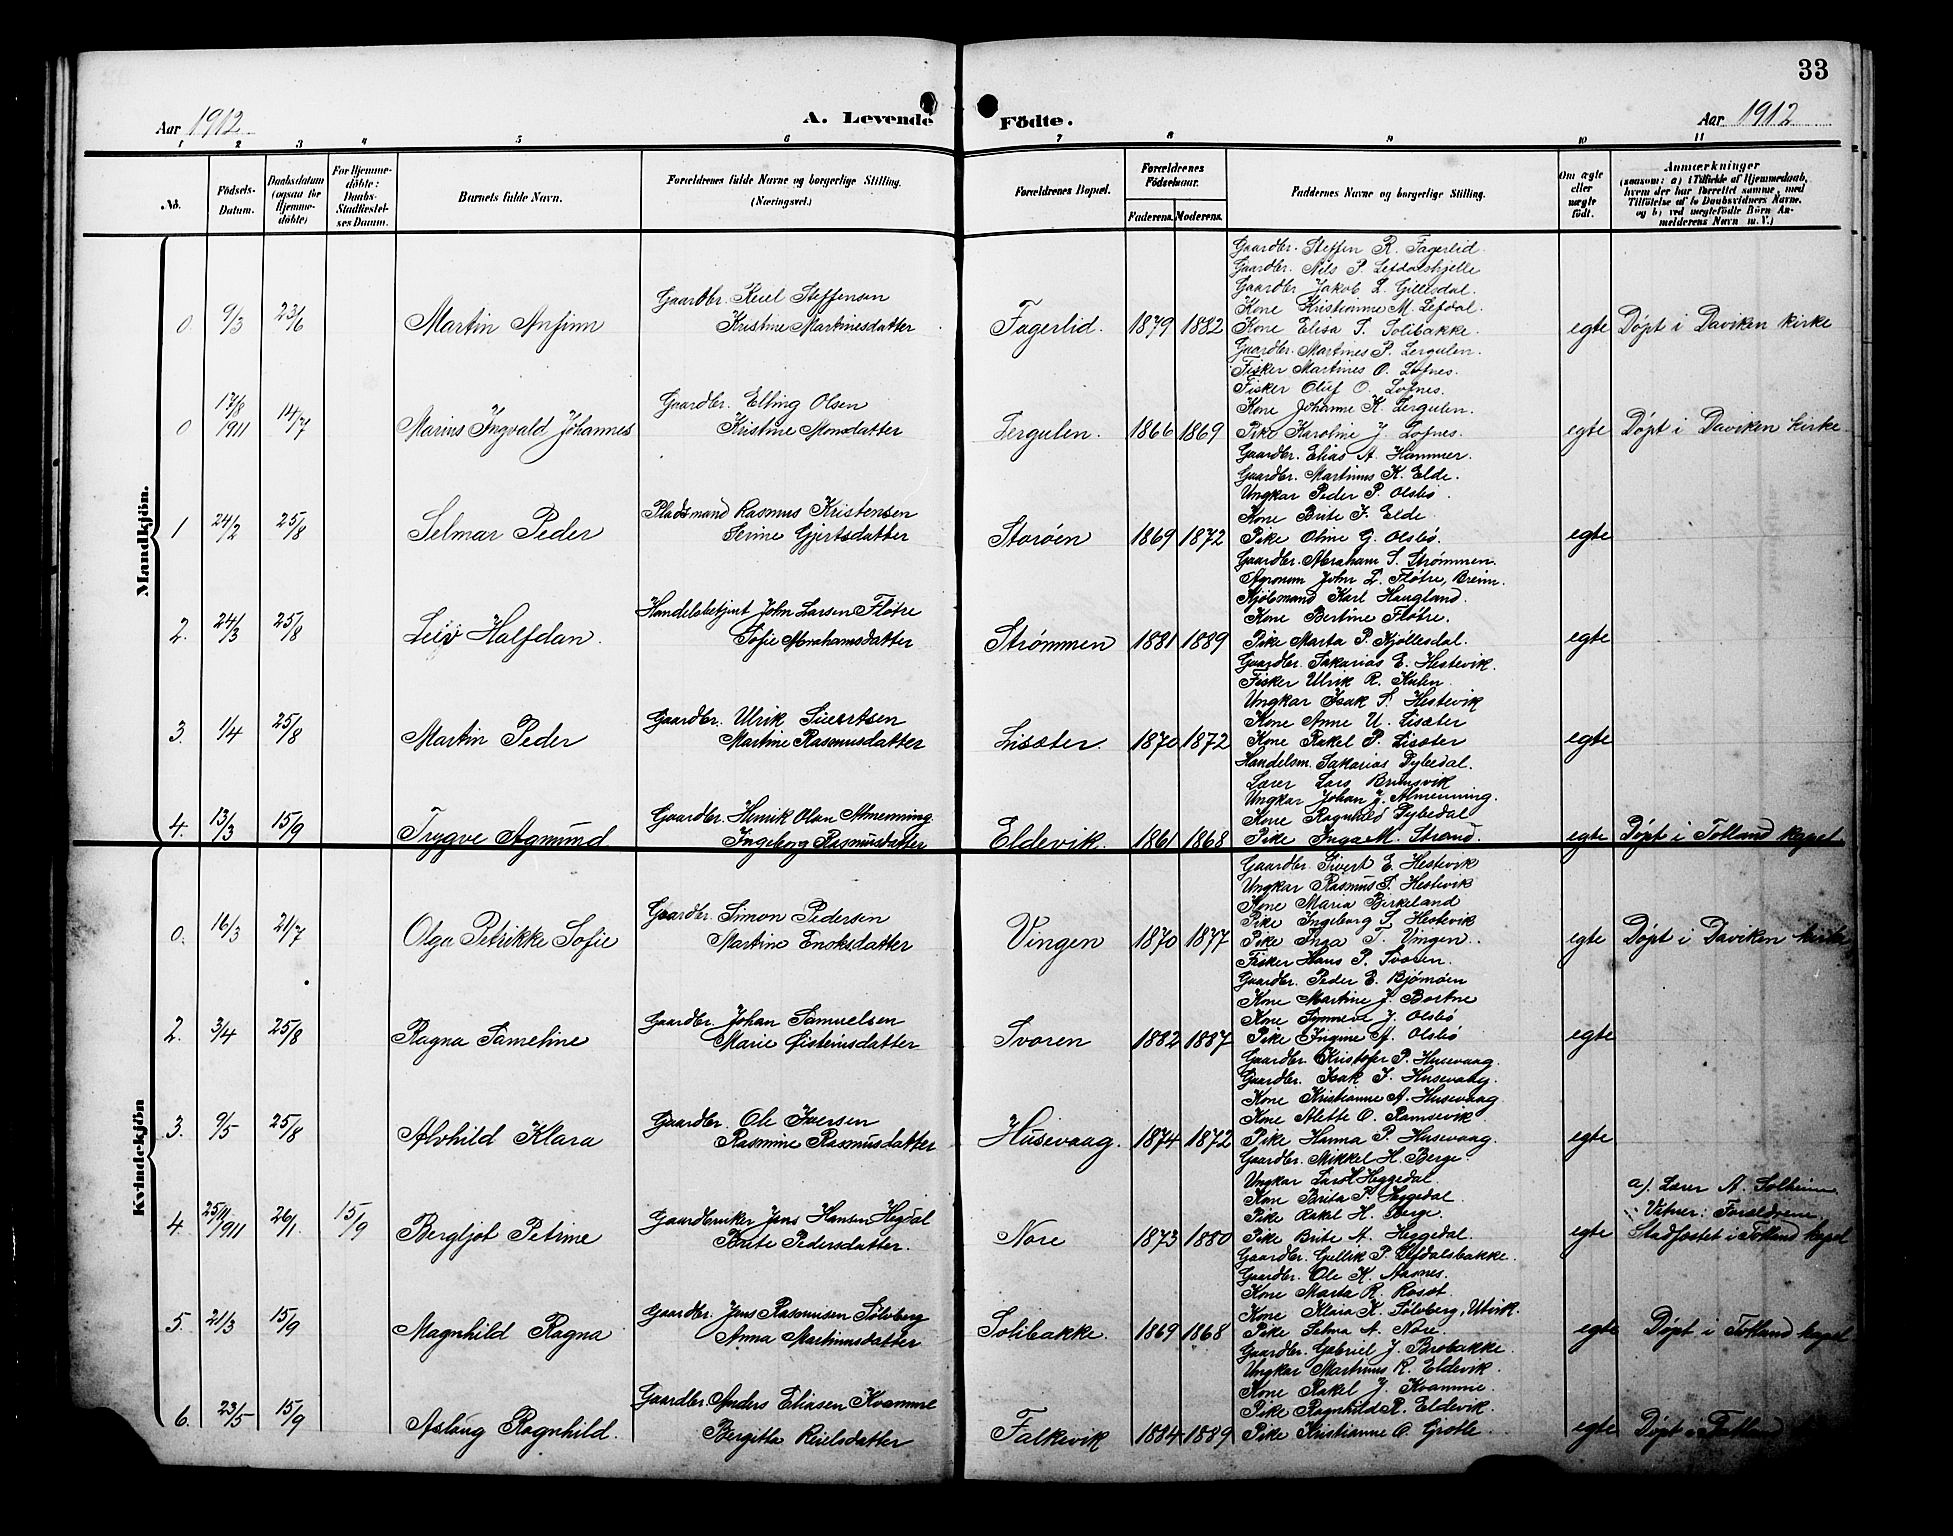 33
Aar 1912
A. Levende Födte.
Aar 1912
1 2 3 4 5 6 7 8 9 10 11
No.
Födsels-Datum.
Daabsdatum (ogsaa for Hjemmedöbte)
For Hjemmedöbte: Daabs-Stadfæstelses Datum.
Barnets fulde Navn.
Forældrenes fulde Navne og borgerlige Stilling. (Næringsvei.)
Forældrenes Bopæl.
Forældrenes Födselsaar.
Faderens. Moderens.
Faddernes Navne og borgerlige Stilling.
Om ægte eller uægte født.
Anmærkninger
(saasom: a) i Tilfælde af Hjemmedaab, hvem der har forrettet samme, med Tilföielse af to Daabsvidners Navne, og b) ved uægtefødte Börn Anmelderens Navn m. V.)
Mandkjön.
0 9/3 23/6 Martin Anfinn
Gaardbr. Steffensen
Kristine Martinesdatter
Fagerlid. 1879 1882
Gaardbr. Steffen R. Fagerlid.
Gaardbr. Nils P. Lefdalshjelle
Gaardbr. Jakob L. Gillesdal.
Kone Kristianne M. Lefdal.
Kone Elisa P. Solibakke.
egte Døpt i Daviken kirke
0 17/8 1911 14/7 Marius Ingvald Johannes
Gaardbr. Elling Olsen
Kristine Monsdatter
1866 1869
Gaardbr. Martines P.
Fisker Martines O. Lofnes.
Fisker Oluf O. Lofnes.
Kone Johanne K.
Pike Karoline J. Lofnes.
egte Døpt i Daviken kirke
1 24/2 25/8 Selmar Peder
Pladsmand Rasmus Kristensen
Serine Gjertsdatter
Storøen 1869 1872
Gaardbr. Elias A. Hammer.
Gaardbr. Martinus K. Elde.
Ungkar Peder P. Olsbø.
Kone Brite J. Elde
Pike Oline G. Olsbø.
egte
2. 24/3 25/8 Leiv Halfdan.
Handelsbetjent John Larsen Fløtre
Sofie Abrahamsdatter
Strømmen 1881 1889
Gaardbr. Abraham S. Strømmen.
Agronom John L. Fløtre, Breim.
Kjøbmand Karl Haugland.
Kone Bertine Fløtre.
Pike Marta P. Kjøllesdal.
egte
3. 1/4 25/8 Martin Peder
Gaardbr. Ulrik Siverten
Martine Rasmusdatter
Lisæter. 1870 1872
Gaardbr. Sakarias E. Hestevik.
Fisker Ulrik R.
Ungkar Isak S. Hestevik
Kone Anne U. Lisæter
Kone Rakel P. Lisæter
egte
4. 13/3 15/9 Trygve Agmund
Gaardbr. Henrik Olsen Almenning
Ingeborg Rasmusdatter
Eldevik. 1861 1868
Handelsm. Sakarias Dybedal.
Lærer Lars Bremsvik
Ungkar Johan J. Almenning.
Kone Ragnhild Dybedal
Pike Inga M. Strand.
egte Døpt i Totland kapel
Kvindekjön
0. 16/3 21/7 Olga Petrikke Sofie
Gaardbr. Simon Pedersen
Martine Enoksdatter
Vingen 1870 1877
Gaardbr. Sivert E. Hestevik
Ungkar Rasmus S. Hestevik
Kone Maria Birkeland
Pike Ingeborg S. Hestevik
Pike Inga T. Vingen.
egte Døpt i Daviken kirke
2. 3/4 25/8 Ragna Sameline
Gaardbr. Johan Samuelsen
Marie Eisteinsdatter
Svoren 1882 1887
Fisker Hans P. Svoren.
Gaardbr. Peder E. Bjørnøen
Kone Martine J. Bortne
Kone Synneve J. Olsbø
Pike Ingine A. Olsbø
egte
3. 9/5 25/8 Alvhild Klara
Gaardbr. Ole Iversen
Rasmine Rasmusdatter
Husevaag. 1874 1872
Gaardbr. Kristofer P. Husevaag.
Gaardbr. Isak J. Husevaag.
Kone Kristianne A. Husevaag
Kone Alette O. Ramsevik.
Pike Hanna P. Husevaag.
egte
4. 25/11 1911 26/1. 15/9 Bergljot Petrine
Gaardbruker Jens Hansen Hegdal
Brite Pedersdatter.
Nore 1873 1880
Gaardbr. Mikkel H. Berge.
Ungkar Lars H. Heggedal
Kone Brita P. Heggedal.
Pike Rakel H. Berge.
Pike Brite A. Heggedal.
egte
a). Lærer A. Solheim
Vitner: Forældrene.
Stadfæstet i Totland kapel
5. 21/3 15/9 Magnhild Ragna
Gaardbr. Jens Rasmusen Sølvberg
Anna Martinusdatter
Solibakke. 1869 1868
Gaardbr. Gullik P. Lefdalsbakke.
Gaardbr. Ole K. Aasnes.
Kone Marta R.
Kone Klara K. Sølvberg, Utvik.
Pike Selma A. Nore.
egte Døpt i Totland kapel
6. 23/5 15/9 Aslaug Ragnhild.
Gaardbr. Anders Eliasen Kvamme
Bergitta
Falkevik 1884 1889
Gaardbr. Gabriel J. Brobakke.
Ungkar Martinus R. Eldevik.
Kone Rakel J. Kvamme.
Pike Ragnhild R. Eldevik.
Pike Kristianne O. Grotle.
egte Døpt i Totland